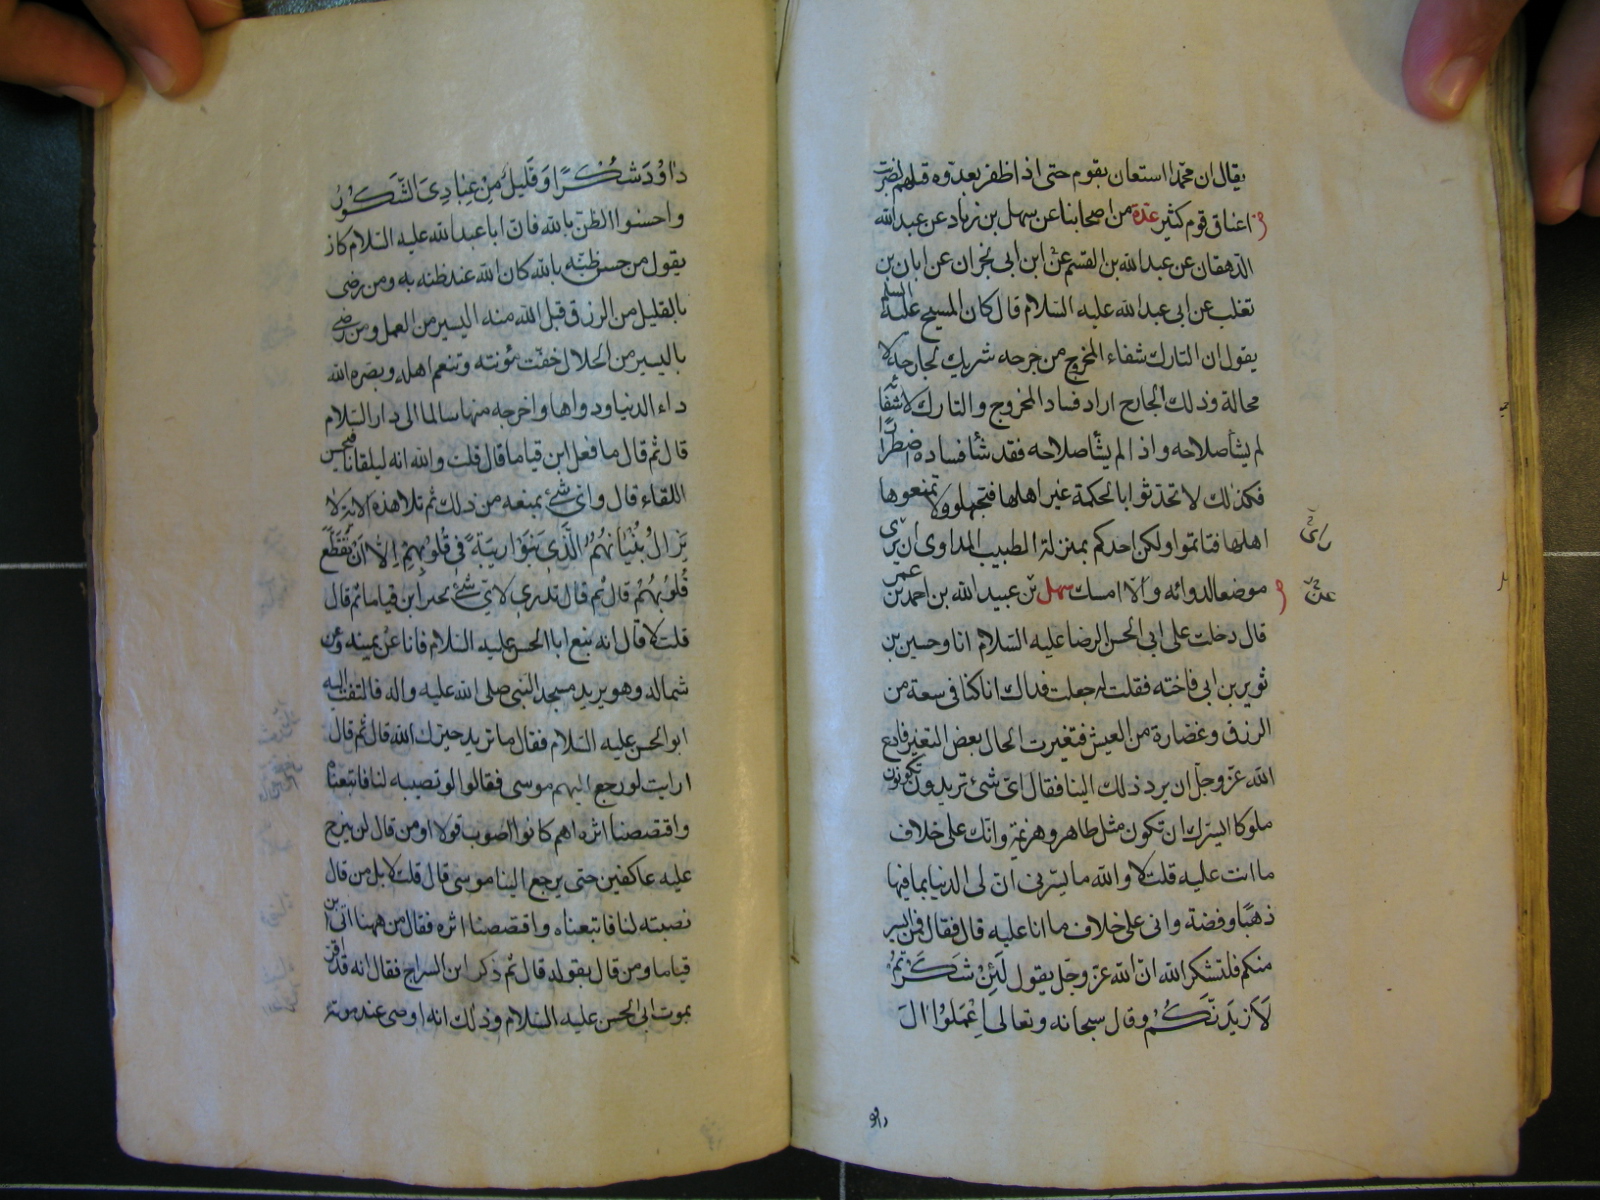 يقال ان محمدا استعان بقوم حتى اذا ظفر بعدوه قتلهم لضربت
اعناق قوم كثير عدة من اصحابنا عن سهل بن زياد عن عبيد الله
الدهقان عن عبد الله بن القسم عن ابن ابى نجران عن ابان بن
تغلب عن ابى عبد الله عليه السلام قال كان المسيح عليه السلم
يقول ان التارك شفاء المجروح من جرحه شريك لجارحه لا
محالة وذلك الجارح اراد فساد المجروح والتارك لاشفائه
لم يشأ صلاحه واذا لم يشأ صلاحه فقد شأ فساده اضطرارا
فكذلك لا تحدثوا بالحكمة غير اهلها فتجهلوا ولا تمنعوها
اهلها فتاثموا وليكن احدكم بمنزلة الطبيب المداوى ان رأى
موضعا لدوائه والا امسك سهل بن عبيد الله بن احمد بن عمر
قال دخلت على ابى الحسن الرضا عليه السلام انا وحسين بن
ثوير بن ابى فاخته فقلت له جعلت فداك انا كنا فى سعة من
الرزق وغضارة من العيش فتغيرت الحال بعض التغير فادع
الله عز وجل ان يرد ذلك الينا فقال اى شئ تريدون تكونون
ملوكا ايسرك ان تكون مثل طاهر وهرثمة وانك على خلاف
ما انت عليه قلت لا والله ما يسرنى ان لى الدنيا بما فيها
ذهبا وفضة وانى على خلاف ما انا عليه قال فقال فمن ايسر
منكم فلتشكر الله ان الله عز وجل يقول لَئِنْ شَكَرْتُمْ
لَاَزِيدَنَّكُمْ وقال سبحانه وتعالى اِعْمَلُوا الَ
داو
رأى
عن
دَاوُدَ شُكْرًا وَقَلِيلٌ مِنْ عِبَادِىَ الشَّكُورُ
واحسنوا الظن بالله فان ابا عبد الله عليه السلام كان
يقول من حسن ظنه بالله كان الله عند ظنه به ومن رضى
بالقليل من الرزق قبل الله منه اليسير من العمل ومن رضى
باليسير من الحلال خفت مؤنته وتنعم اهله وبصره الله
داء الدنيا ودواها واخرجه منها سالما الى دار السلام
قال ثم قال ما فعل ابن قياما قال قلت والله انه ليلقانا فيحسن
اللقاء قال واى شئ يمنعه من ذلك ثم تلا هذه الاية لَا
يَزَالُ بُنْيَانُهُمُ الَّذِى بَنَوْا رِيبَةً فِى قُلُوبِهِمْ اِلَّا اَنْ تَقَطَّعَ
قُلُوبُهُمْ قال ثم قال تدرى لاى شئ تحير ابن قياما ثم قال
قلت لا قال انه تبع ابا الحسن عليه السلام فاتاه عن يمينه وعن
شماله وهو يريد مسجد النبى صلى الله عليه واله فالتفت اليه
ابو الحسن عليه السلام فقال ما تريد حيرك الله قال ثم قال
ارايت لو رجع اليهم موسى فقالوا لو نصبته لنا فاتبعناه
واقتصصنا اثره اهم كانوا اصوب قولا او من قال لن نبرح
عليه عاكفين حتى يرجع الينا موسى قال قلت لا بل من قال
نصبته لنا فاتبعناه واقتصصنا اثره فقال من ههنا اتى ابن
قياما ومن قال بقوله قال ثم ذكر ابن السراج فقال انه قد اقر
بموت ابى الحسن عليه السلام وذلك انه اوصى عند موته